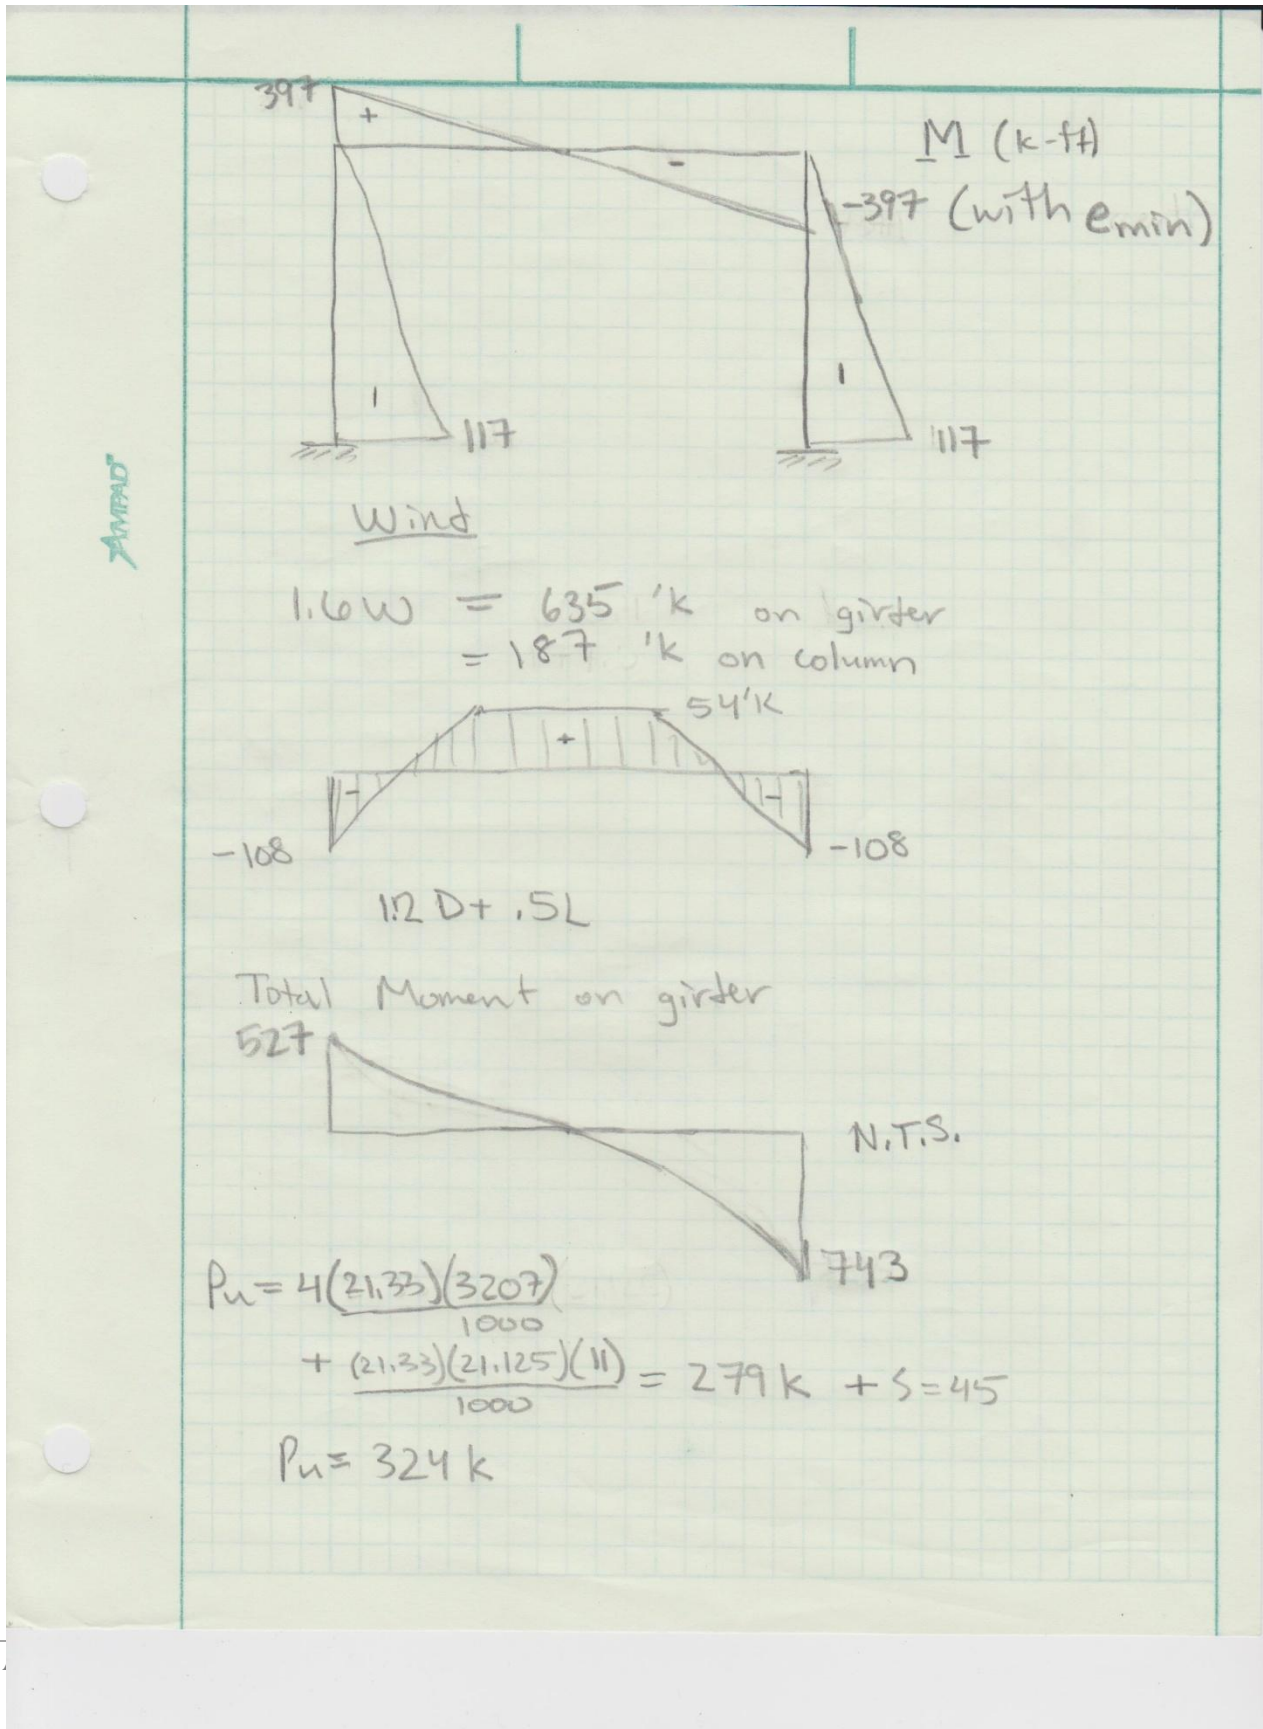 397
+
-
M (k-ft)
-397 (with emin)
117
117
AMPAD
Wind
1.6W = 635 'k on girder
= 187 'k on column
54'k
+
-
-
-108
-108
1.2 D + .5L
Total Moment on girder
527
N.T.S.
743
Pu = 4(21.33)(3207)
1000
+ (21.33)(21.125)(11) = 279 k + S = 45
1000
Pu = 324 k